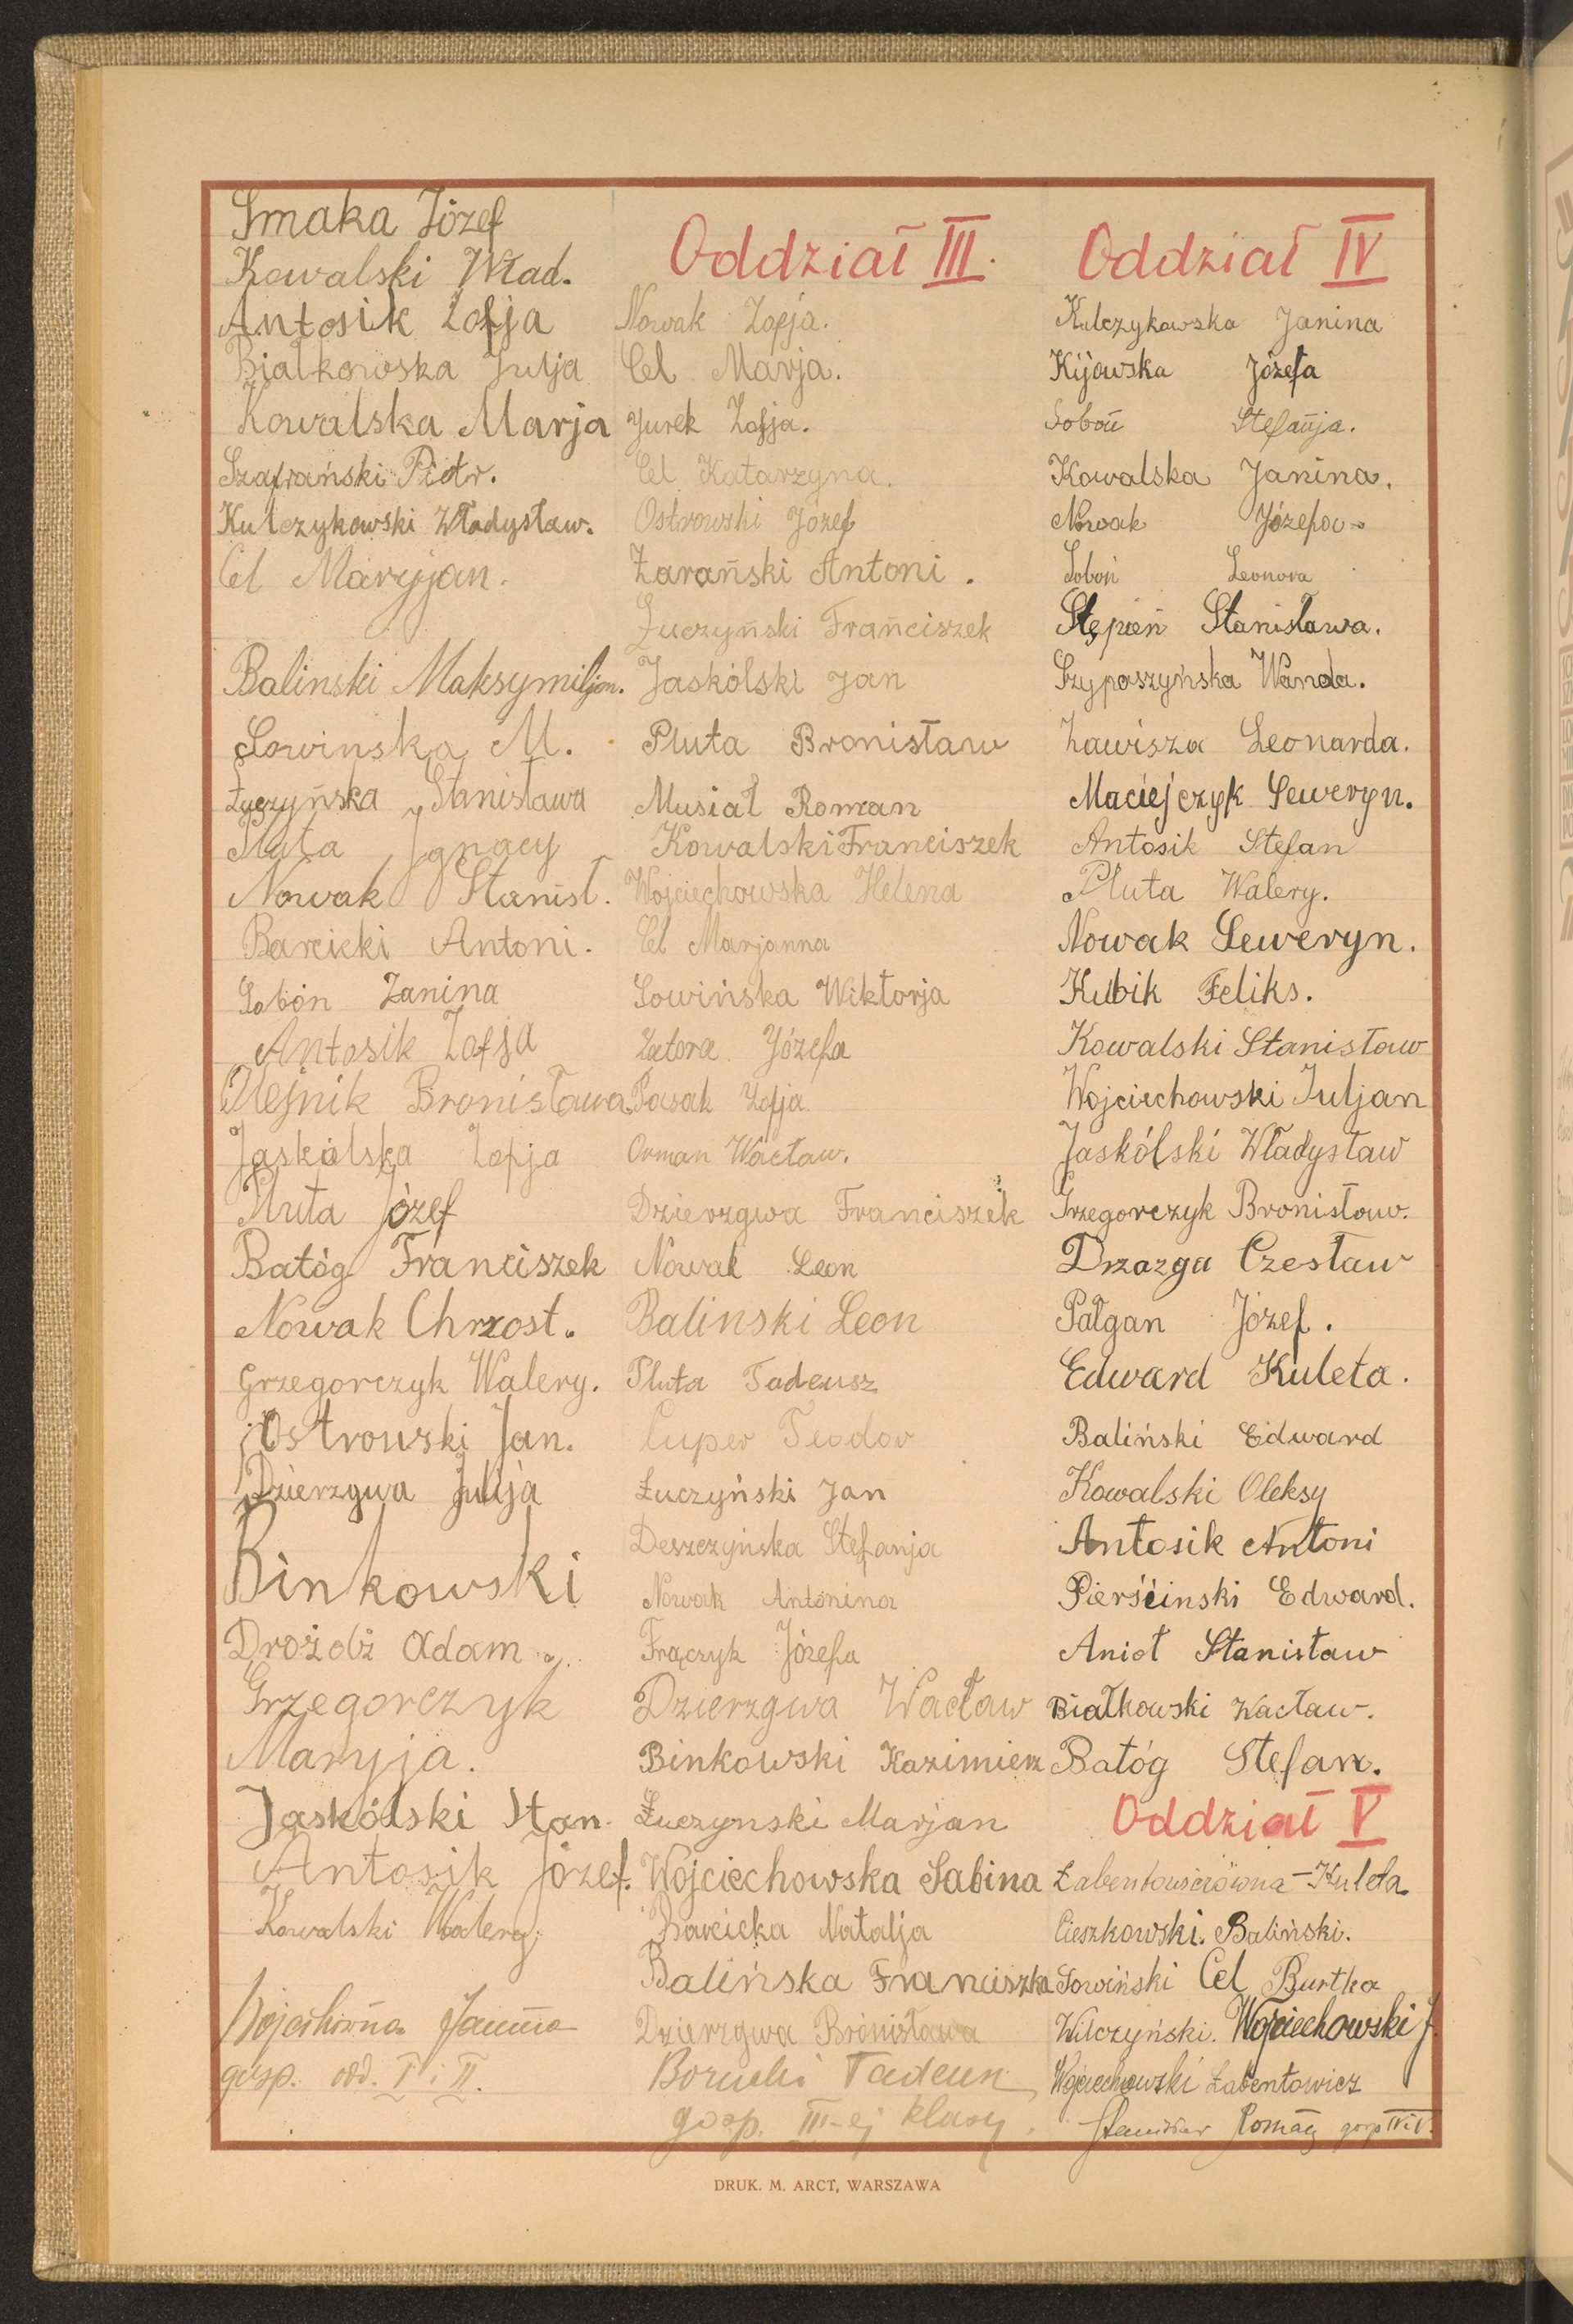 Smaka Józef
Kowalski Wład.
Antosik Zofja
Białkowska Julja
Kowalska Marja
Szafrański Piotr.
Kulczykowski Władysław.
Cel Maryjan.
Balinski Maksymiljan.
Sowinska M.
Łuczyńska Stanisława
Pluta Jgnacy
Nowak Stanisł.
Barcicki Antoni.
Soboń Janina
Antosik Zofja
Olejnik Bronisława
Jaskólska Zofja
Pluta Józef
Batóg Franciszek
Nowak Chrzost.
Grzegorczyk Walery.
Ostrowski Jan.
Dzierzgwa Julija
Binkowski
Drożdż Adam
Grzegorczyk
Maryja.
Jaskólski Stan.
Antosik Józef.
Kowalski Walery
Janina
gosp. odd. I i II.
Oddział III.
Nowak Zofja.
Cel Marja.
Jurek Zofja.
Cel Katarzyna.
Ostrowski Józef
Żarański Antoni.
Łuczyński Franciszek
Jaskólski Jan
Pluta Bronisław
Musiał Roman
Kowalski Franciszek
Wojciechowska Helena
Cel Marjanna
Sowińska Wiktorja
Zatora Józefa
Pasak Zofja.
Orman Wacław.
Dzierzgwa Franciszek
Nowak Leon
Balinski Leon
Pluta Tadeusz
Cuper Teodor
Łuczyński Jan
Deszczyńska Stefanja
Nowak Antonina
Frączyk Józefa
Dzierzgwa Wacław
Binkowski Kazimierz
Łuczynski Marjan
Wojciechowska Sabina
Barcicka Natalja
Balińska Franciszka
Dzierzgwa Bronisława
Borucki Tadeusz
gosp. III-ej klasy.
Oddział IV
Kulczykowska Janina
Kijowska Józefa
Soboń Stefanja.
Kowalska Janina.
Nowak Józefa
Soboń Leonora
Stępień Stanisława.
Szyposzyńska Wanda.
Zawisza Leonarda.
Maciejczyk Seweryn.
Antosik Stefan
Pluta Walery.
Nowak Seweryn.
Kubik Feliks.
Kowalski Stanisław
Wojciechowski Juljan
Jaskólski Władysław
Grzegorczyk Bronisław.
Drzazga Czesław
Pałgan Józef.
Edward Kuleta.
Baliński Edward
Kowalski Oleksy
Antosik Antoni
Pierścinski Edward.
Anioł Stanisław
Białkowski Wacław.
Batóg Stefan.
Oddział V
Żabentowiczówna - Kuleta
Cieszkowski. Baliński.
Sowiński Cel Burtka
Wilczyński. Wojciechowski J.
Wojciechowski Żabentowicz
Stanisław gosp IV i V.
DRUK. M. ARCT, WARSZAWA